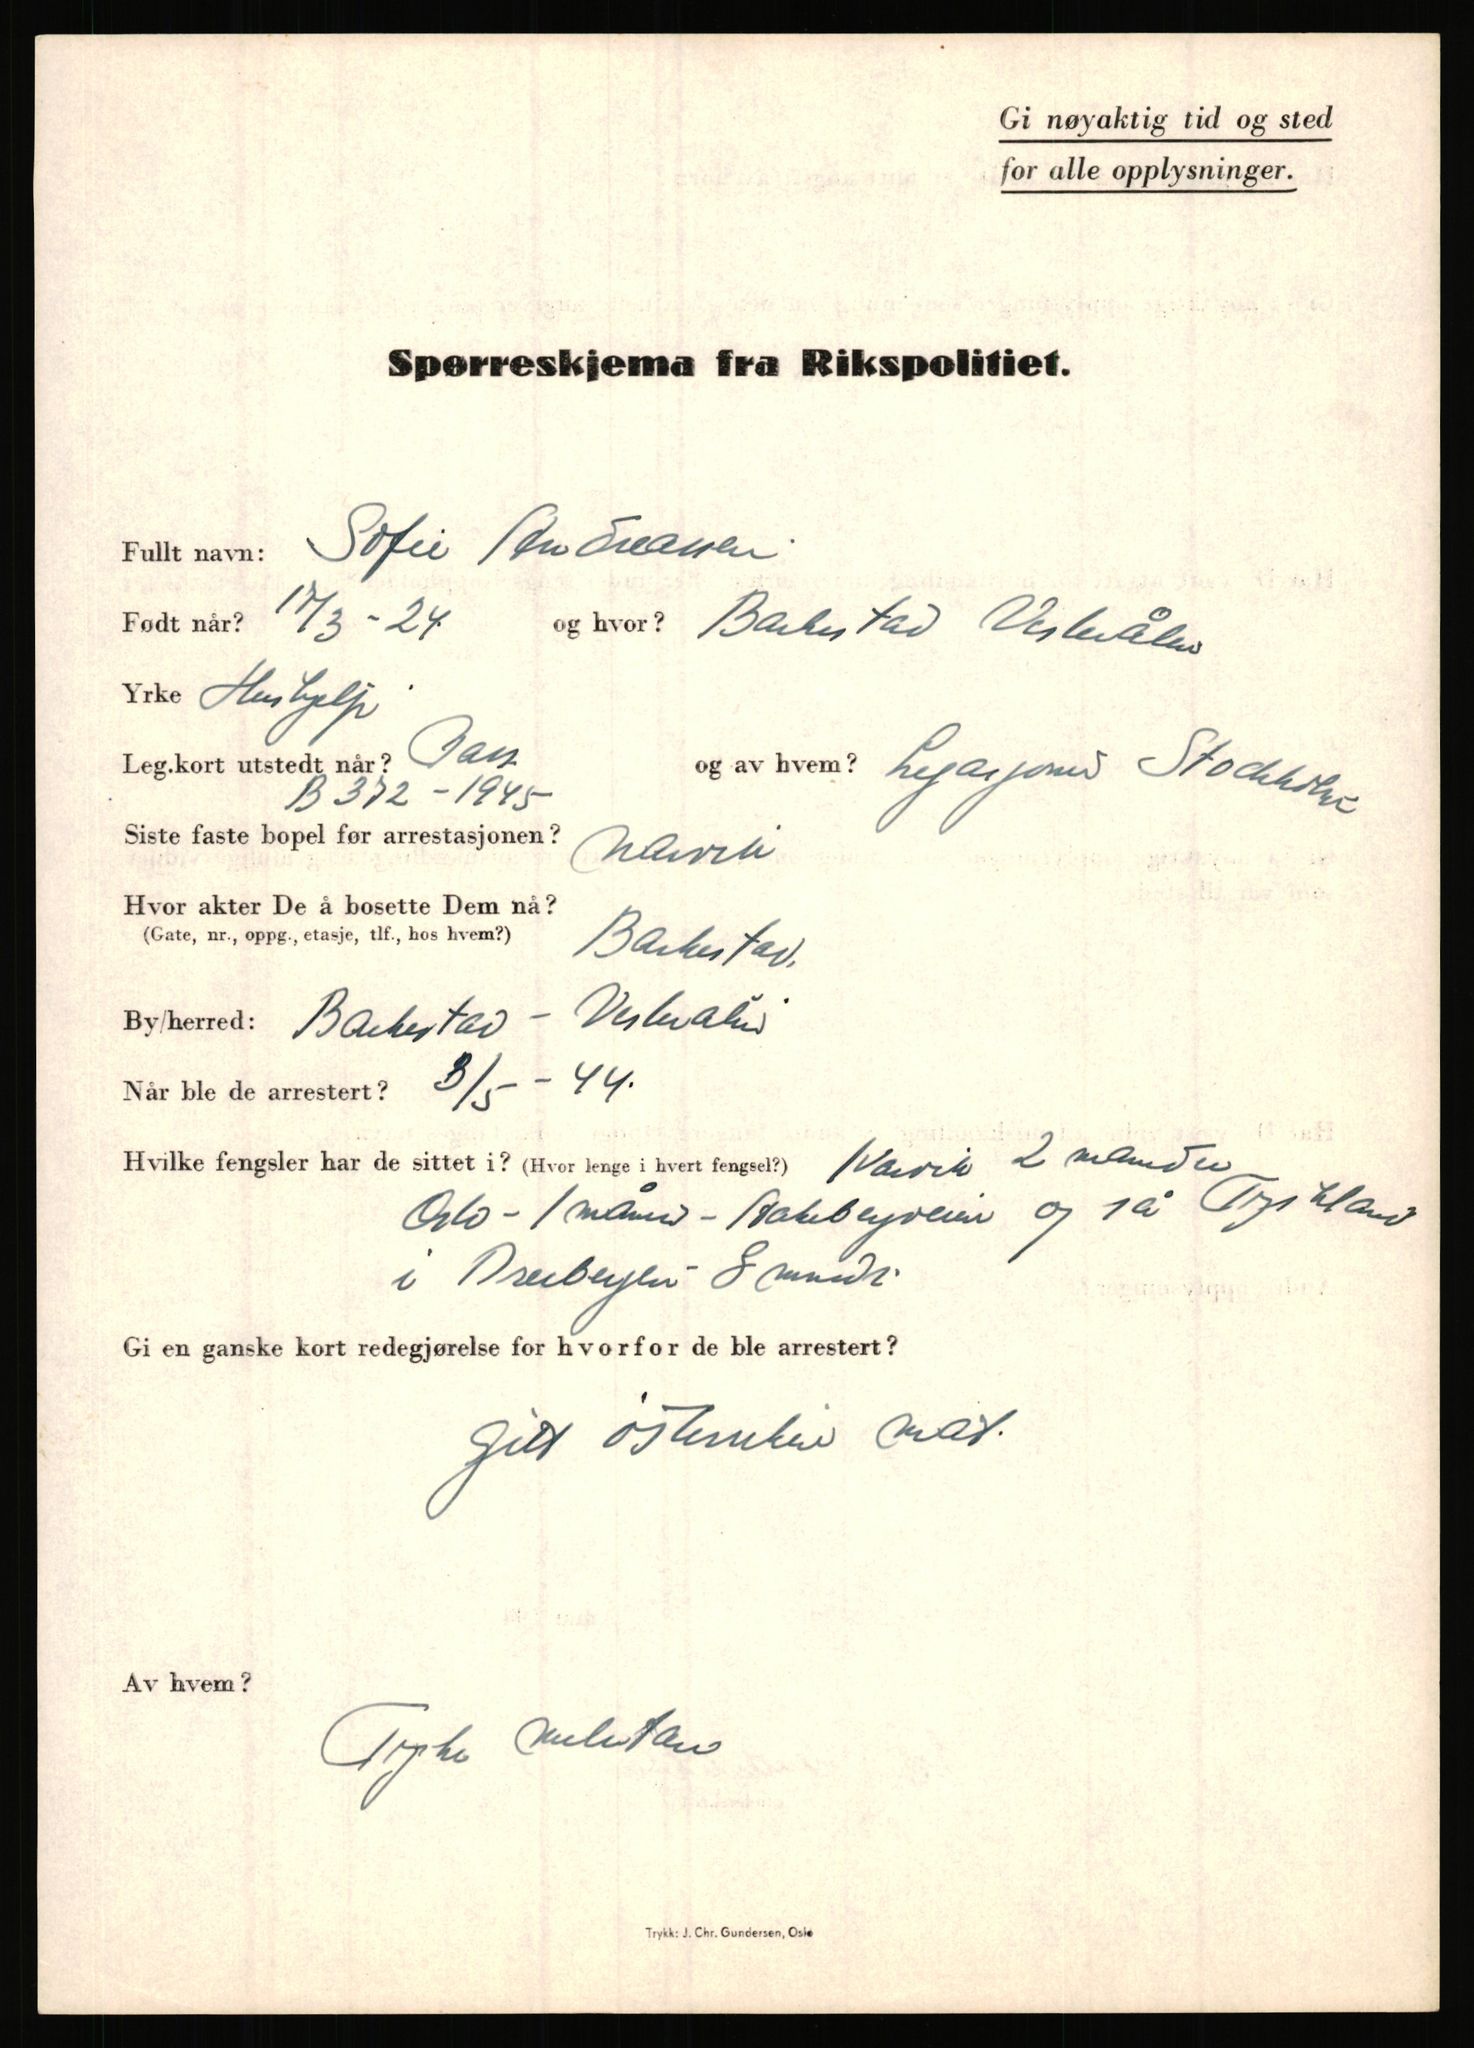 Gi nøyaktig tid og sted
for alle opplysninger.
Spørreskjema fra Rikspolitiet.
Fullt navn: Sofie Andreassen
Født når? 17/3 - 24. og hvor? Barkestad Vesterålen
Yrke Hushjelp
Leg.kort utstedt når? Pass og av hvem? Legasjonen Stockholm
B 372 - 1945
Siste faste bopel før arrestasjonen? Narvik
Hvor akter De å bosette Dem nå?
(Gate, nr., oppg., etasje, tlf., hos hvem?) Barkestad.
By/herred: Barkestad - Vesterålen
Når ble de arrestert? 3/5 - 44.
Hvilke fengsler har de sittet i? (Hvor lenge i hvert fengsel?) Narvik 2 måneder
Oslo - 1 måned - Aakebergveien og så Tyskland
i
Gi en ganske kort redegjørelse for hvorfor de ble arrestert?
gitt østerrikere mat.
Av hvem?
Tyske
Trykk: J. Chr. Gundersen, Oslo